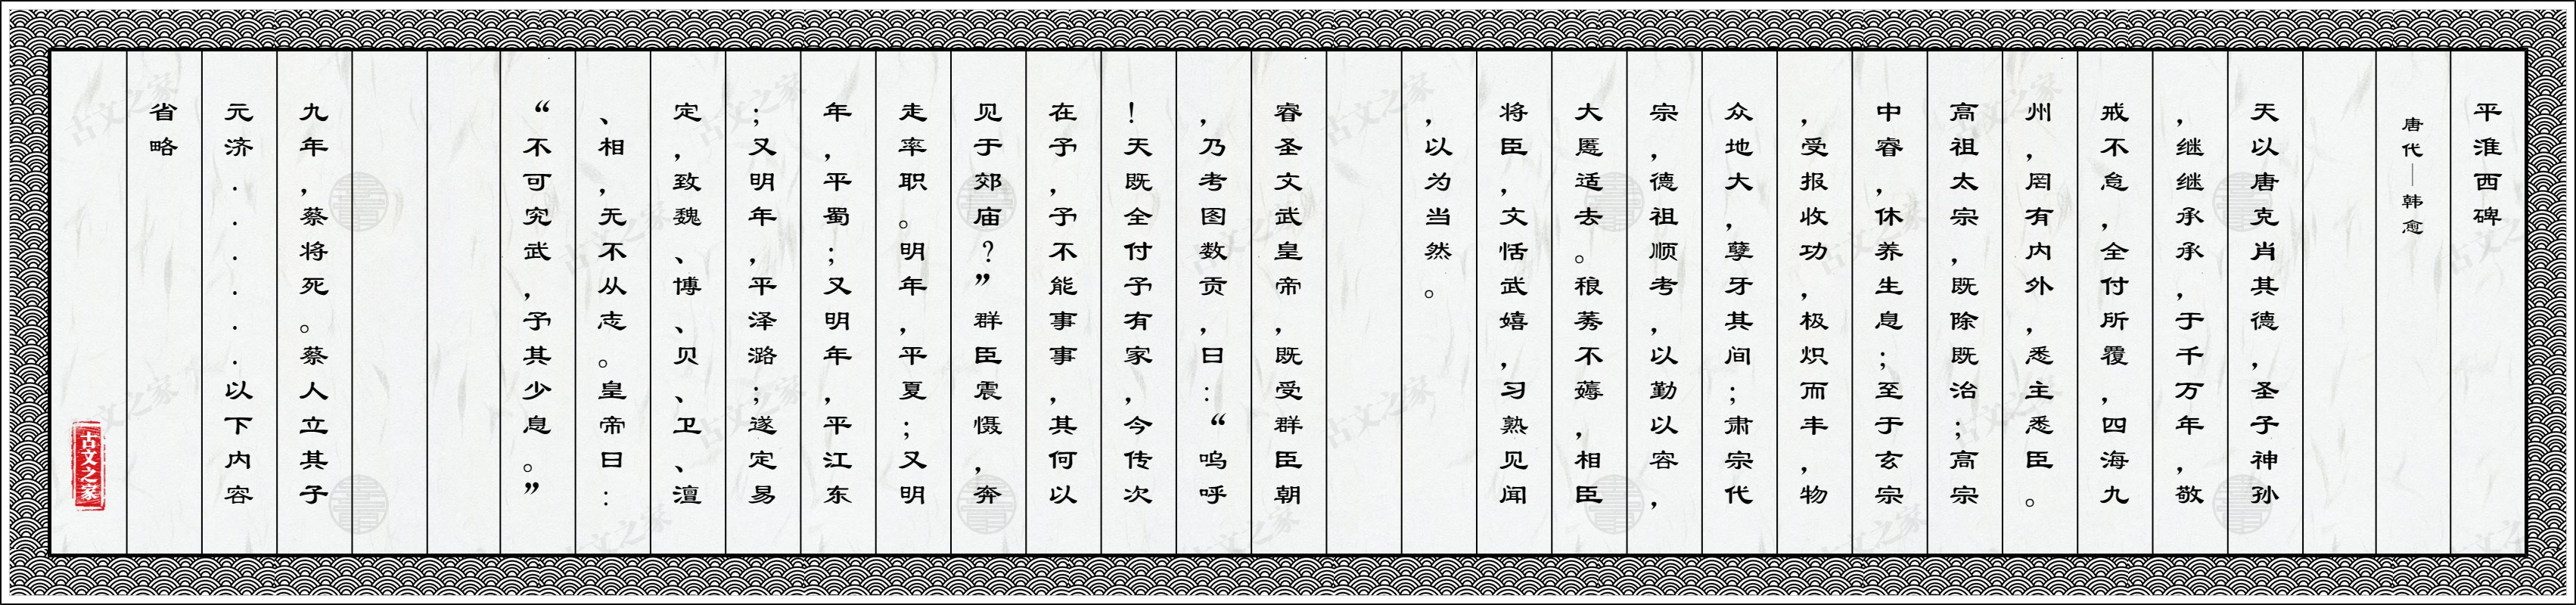 平淮西碑
唐代—韩愈
天以唐克肖其德，圣子神孙
，继继承承，于千万年，敬
戒不怠，全付所覆，四海九
州，罔有内外，悉主悉臣。
高祖太宗，既除既治；高宗
中睿，休养生息；至于玄宗
，受报收功，极炽而丰，物
众地大，孽牙其间；肃宗代
宗，德祖顺考，以勤以容，
大慝适去。稂莠不薅，相臣
将臣，文恬武嬉，习熟见闻
，以为当然。
睿圣文武皇帝，既受群臣朝
，乃考图数贡，曰：“呜呼
！天既全付予有家，今传次
在予，予不能事事，其何以
见于郊庙？”群臣震慑，奔
走率职。明年，平夏；又明
年，平蜀；又明年，平江东
；又明年，平泽潞；遂定易
定，致魏、博、贝、卫、澶
、相，无不从志。皇帝曰：
“不可究武，予其少息。”
九年，蔡将死。蔡人立其子
元济......以下内容
省略
古文之家